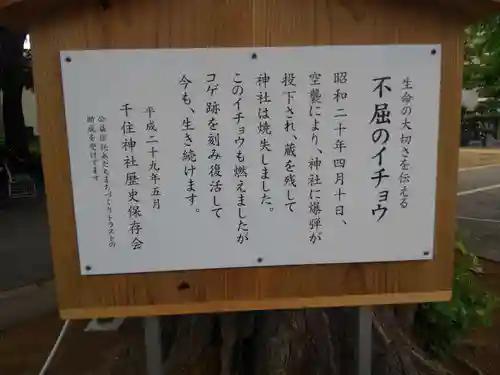 生命の大切さを伝える
不屈のイチョウ
昭和二十年四月十日、
空襲により、神社に爆弾が
投下され、蔵を残して
神社は焼失しました。
このイチョウも燃えましたが
コゲ跡を刻み復活して
今も、生き続けます。
平成二十九年五月
千住神社歴史保存会
公益信託あだちまちづくりトラストの
助成を受けてます